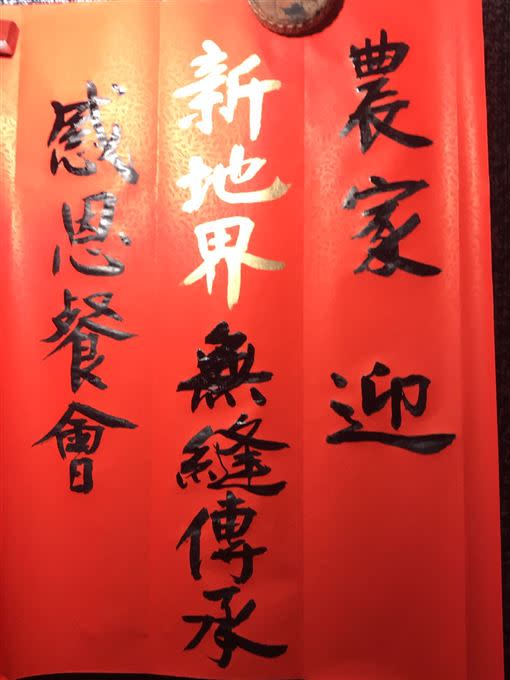 農家 迎
新地界無縫傳承
感恩餐會